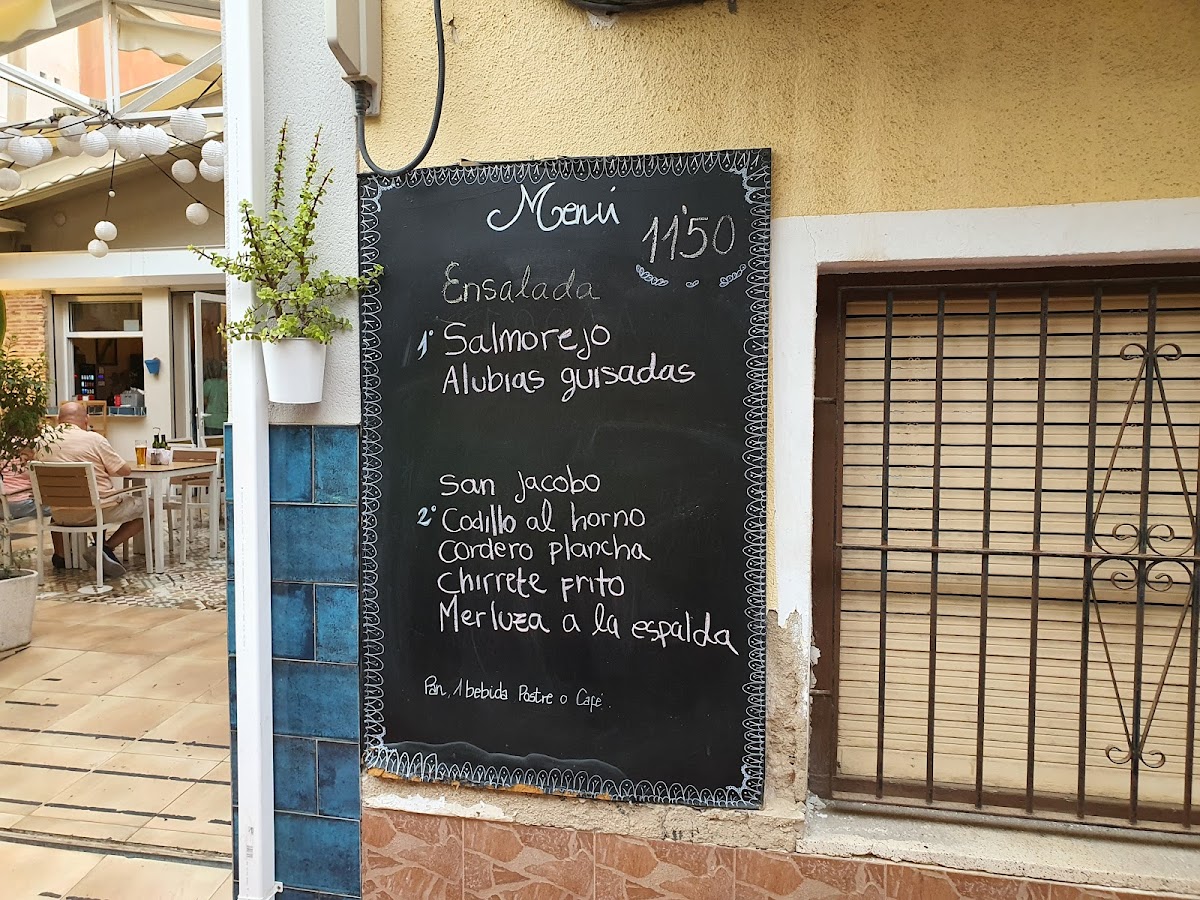 Menú
11'50
Ensalada
1º Salmorejo
Alubias guisadas
San Jacobo
2º Codillo al horno
Cordero plancha
Chirrete frito
Merluza a la espalda
Pan, 1 bebida Postre o Café.